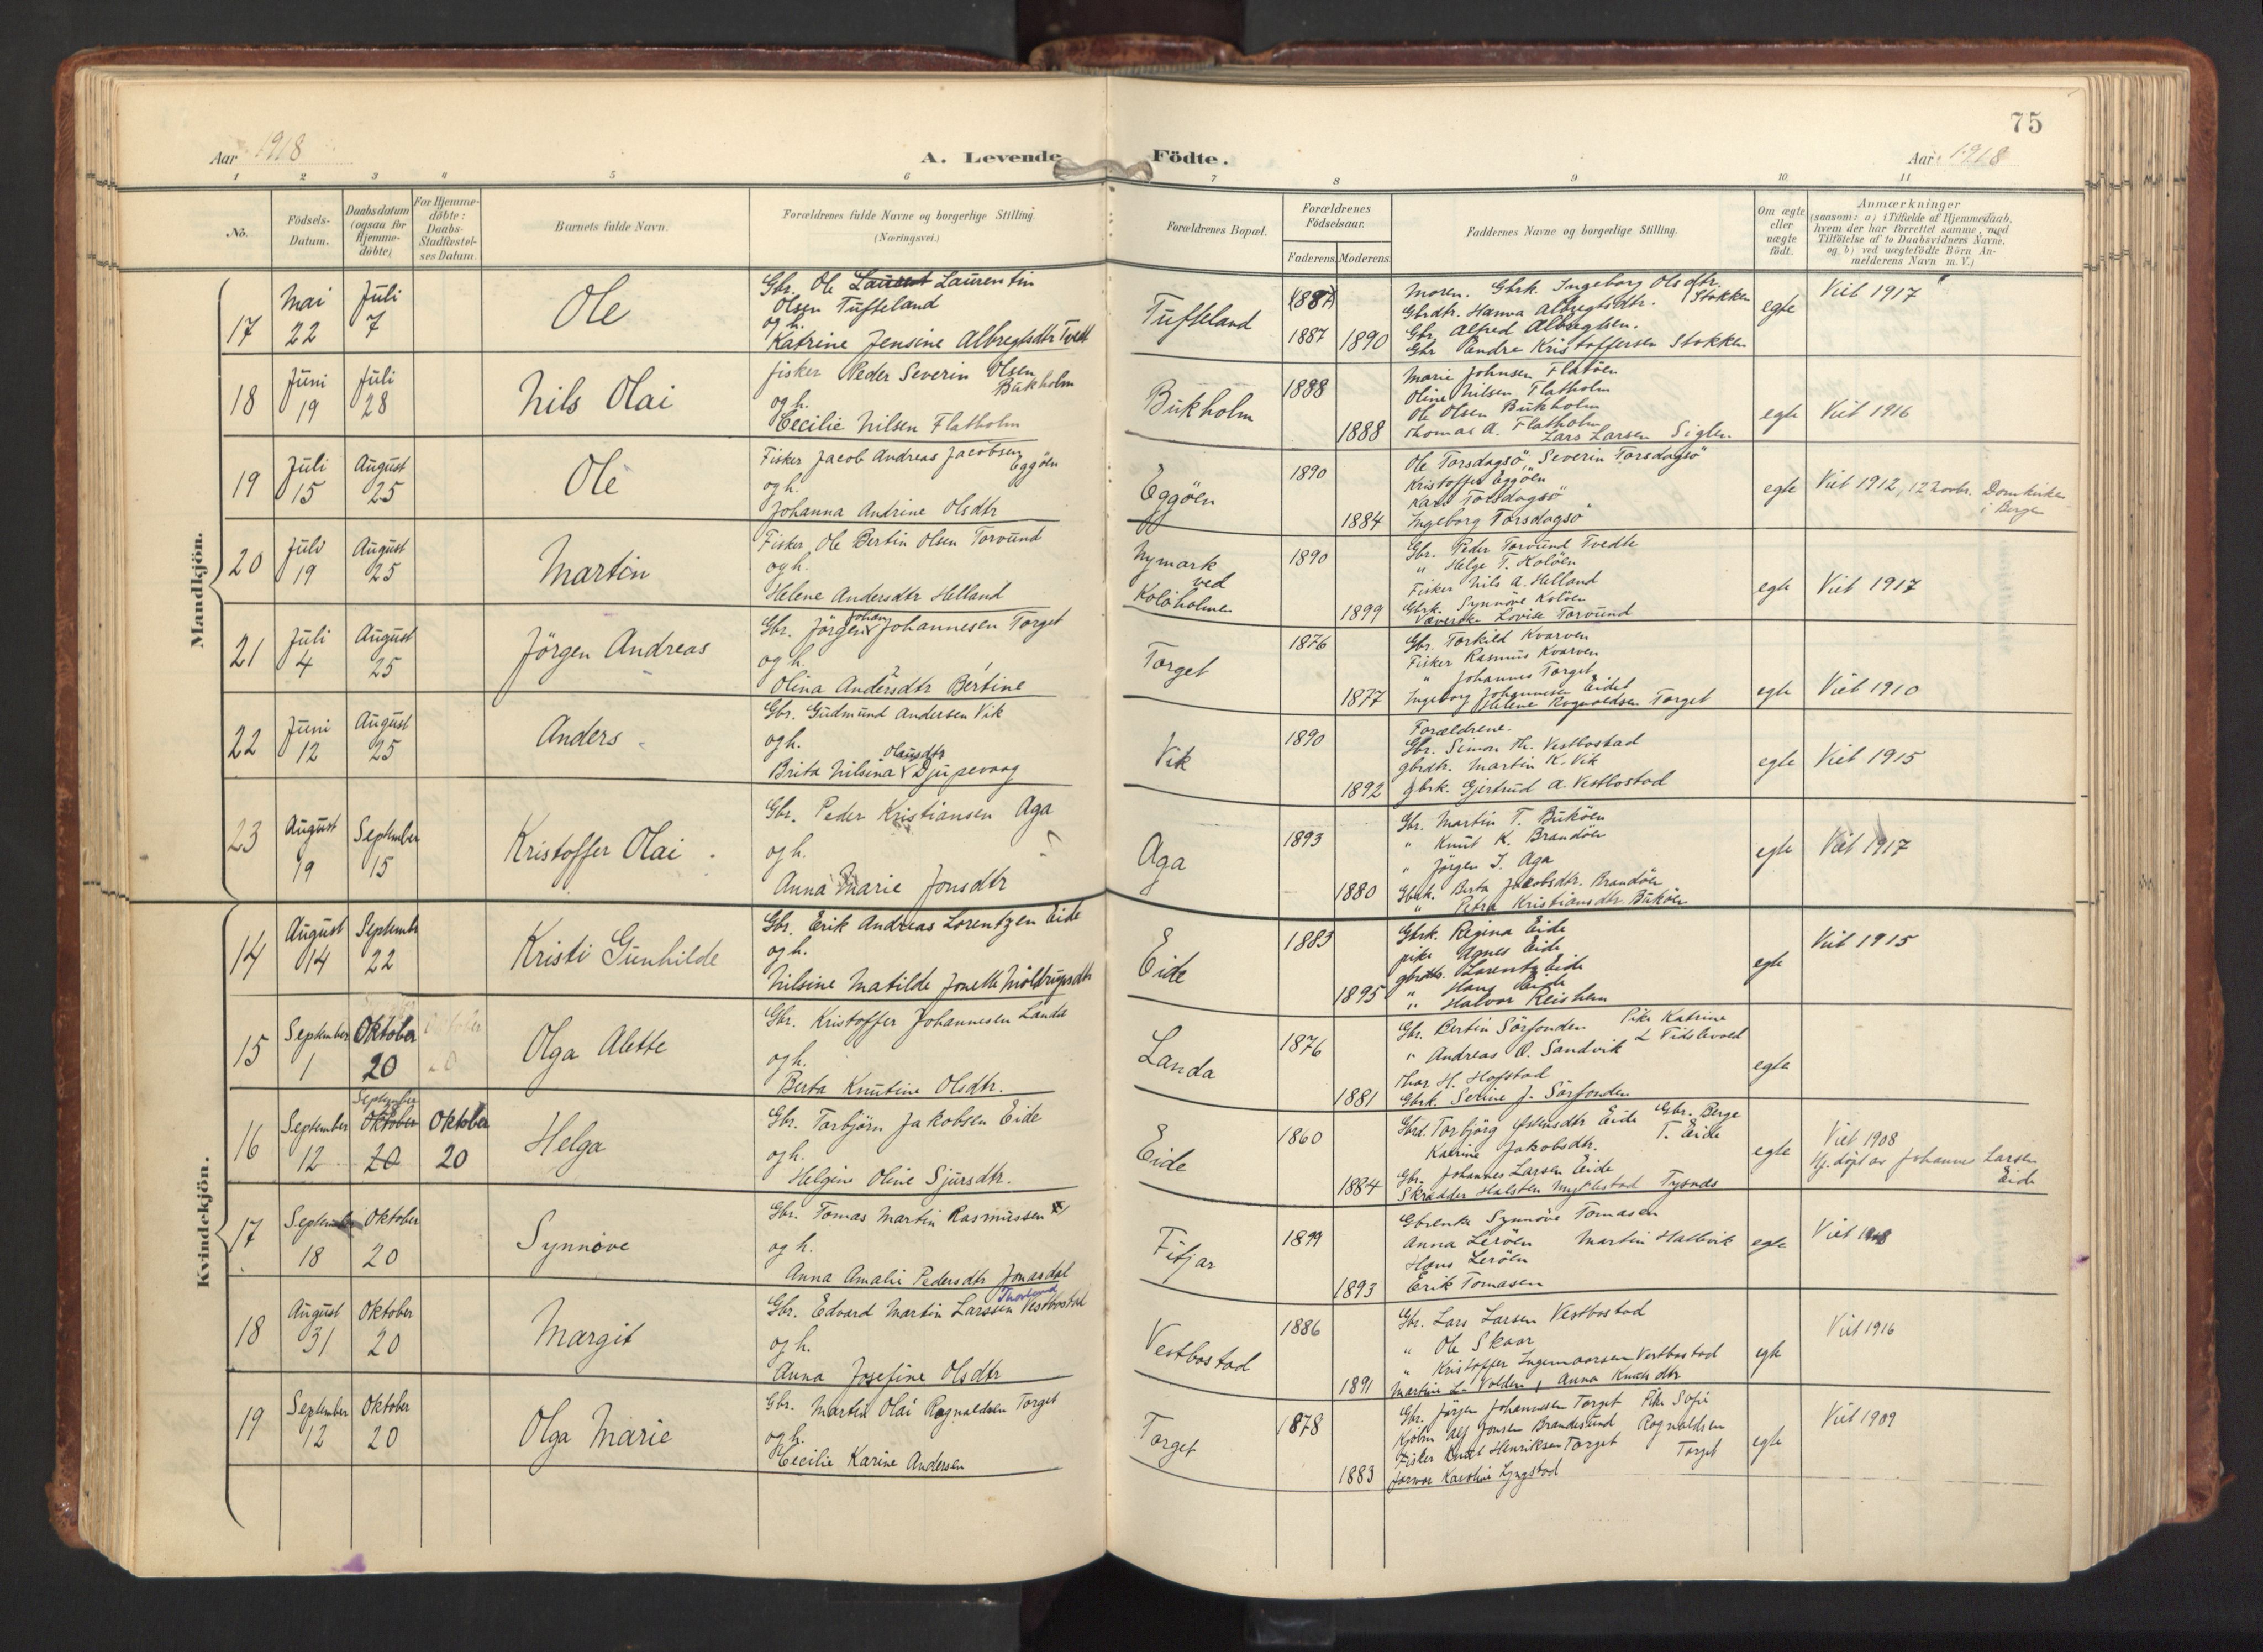 75
Aar 1918
A. Levende Födte.
Aar 1918
1 2 3 4 5 6 7 8 9 10 11
No.
Födsels-
Datum.
Daabsdatum
(ogsaa for
Hjemme-
döbte)
For Hjemme-
döbte:
Daabs-
Stadfæstel-
ses Datum.
Barnets fulde Navn.
Forældrenes fulde Navne og borgerlige Stilling.
(Næringsvei.)
Forældrenes Bopæl.
Forældrenes
Födselsaar.
Faderens. Moderens.
Faddernes Navne og borgerlige Stilling.
Om ægte
eller
uægte
födt.
Anmærkninger
(saasom: a) i Tilfælde af Hjemmedaab,
hvem der har forrettet samme, med
Tilföielse af to Daabsvidners Navne,
og b) ved uægtefödte Börn An-
melderens Navn m. V.)
Mandkjön.
17
Mai
22
Juli
7
Ole
Gbr. Ole Laurent Laurentin
Olsen Tufteland
og h.
Katrine Jensine Albregtsdtr Tvedt
Tufteland
1887
1887 1890
Moren. Gbrk. Ingeborg Olsdtr.
Gbrdtr. Hanna Albregtsdtr. Stokken
Gbr. Alfred Albregtsen.
Gbr Andre Kristoffersen Stokken
egte
Viet 1917
18
Juni
19
Juli
28
Nils Olai
fisker Peder Severin Olsen
Bukholm
og h.
Cecilie Nilsen Flatholm
Bukholm
1888
1888
Marie Johnsen Flatöen
Oline Nilsen Flatholm
Ole Olsen Bukholm
Thomas A. Flatholm
Lars Larsen Siglen
egte
Viet 1916
19
Juli
15
August
25
Ole
Fisker Jacob Andreas Jacobsen
Eggöen
og h.
Johanna Andrine Olsdtr
Eggöen
1890
1884
Ole Torsdagsö, Severin Torsdagsö
Kristoffer Eggöen
Karl Torsdagsö
Ingeborg Torsdagsö
egte
Viet 1912, 12 novbr. Domkirken
i Bergen
20
Juli
19
August
25
Martin
Fisker Ole Bertin Olsen Torvund
og h.
Helene Andersdtr Helland
Nymark
ved
Kolöholmen
1890
1899
Gbr. Peder Torvund Tvedte
" Helge T. Kolöen
Fisker Nils A. Helland
Gbrk. Synnöve Kolöen
Væverske Lovise Torvund
egte
Viet 1917
21
Juli
4
August
25
Jörgen Andreas
Johan
Gbr. Jörgen Johannesen Torget
og h.
Olina Andersdtr Bertine
Torget
1876
1877
Gbr. Torkild Kvarven
Fisker Rasmus Kvarven
" Johannes Torget
Ingeborg Johannesen Eidet
Helene Rognvaldsen Torget
egte
Viet 1910
22
Juni
12
August
25
Anders
Gbr. Gudmund Andersen Vik
og h.
Olausdtr
Brita Nilsina Djupevaag
Vik
1890
1892
Forældrene.
Gbr. Simon Th. Vestbostad
gbrdtr. Martin K. Vik
gbrk. Gjertrud A. Vestbostad
egte
Viet 1915
23
August
19
September
15
Kristoffer Olai
Gbr. Peder Kristiansen Aga
og h.
Anna Marie Jonsdtr
Aga
1893
1880
Gbr. Martin T. Buköen
" Knut K. Brandöen
" Jörgen J. Aga
Gbrk. Berta Jacobsdtr. Brandöen
" Petra Kristiansdtr Buköen
egte
Viet 1917
Kvindekjön.
14
August
14
September
22
Kristi Gunhilde
Gbr. Erik Andreas Lorentzen Eide
og h.
Nilsine Matilde Jonette Möldrupsdtr
Eide
1883
1895
Gbrk. Regina Eide
pike Agnes Eide
Lorentz Eide
" Hans Eide
" Halvor Reishem
egte
Viet 1915
15
September
1
Oktober
20
Olga Alette
Gbr. Kristoffer Johannesen Landa
og h.
Berta Knutine Olsdtr.
Landa
1876
1881
Gbr. Bertin Sörfonden Pike Katrine
" Andreas O. Sandvik L Tidslevold
Thor H. Hofstad
Gbrk. Serine J. Sörfonden
egte
16
September
12
September
Oktober
20
Oktober
20
Helga
Gbr. Torbjörn Jakobsen Eide
og h.
Helgine Oline Sjursdtr.
Eide
1860
1884
Torbjörg Eide Gbr. Berge
Katrine Jakobsdtr. T. Eide
Gbr. Johannes Larsen Eide
Skrædder Halsten Myklestad Tysnes
egte
Viet 1908
Hj. döpt av Johannes Larsen
Eide
17
September
18
Oktober
20
Synnöve
Gbr. Tomas Martin Rasmussen
og h.
Anna Amalie Pedersdtr Jonasdal
Fitjar
1899
1893
Gbrenke Synnöve Tomasen
Anna Leröen Martin Hallevik
Hans Leröen
Erik Tomasen
egte
Viet 1918
18
August
31
Oktober
20
Margit
Gbr. Edvard Martin Larssen Vestbostad
og h.
Anna Josefine Olsdtr
Vestbostad
1886
1891
Gbr. Lars Larsen Vestbostad
" Ole Skaar
" Kristoffer Ingemaarsen Vestbostad
Martine L. Volden, Anna Knutsdtr
egte
Viet 1916
19
September
12
Oktober
20
Olga Marie
Gbr. Martin Olai Rognaldsen Torget
og h.
Cecilie Karine Andersen
Torget
1878
1883
Gbr. Jörgen Johannesen Torget Pike Sofie
Kjöbm Alf Jonsen Brandesund Rognaldsen
Fisker Knut Henriksen Torget Torget
Karoline Lyngstad
egte
Viet 1909